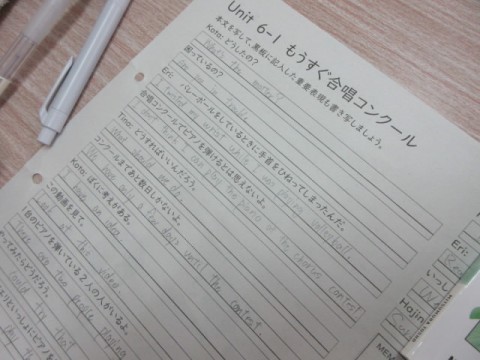 Unit 6-1 もうすぐ合唱コンクール
本文を写して、黒板に記入した重要表現も書き写しましょう。
Koto: どうしたの?
What's the matter?
困っているの?
Are you in trouble
Eri: バレーボールをしているときに手首をひねってしまったんだ。
I twisted my wrist while I was playing volleyball.
合唱コンクールでピアノを弾けるとは思えないよ。
I don't think I can play the piano in the chorus contest
Tina: どうすればいいんだろう。
What should we do
コンクールまであと数日しかないよ。
We have only a few days until the contest.
Koto: ぼくに考えがある。
I have an idea
この動画を見て。
Look at this video
1台のピアノを弾いている2人の人がいるよ。
two people playing
やってみたらどうだろう。
try that
Eri:
Hajin
MEM